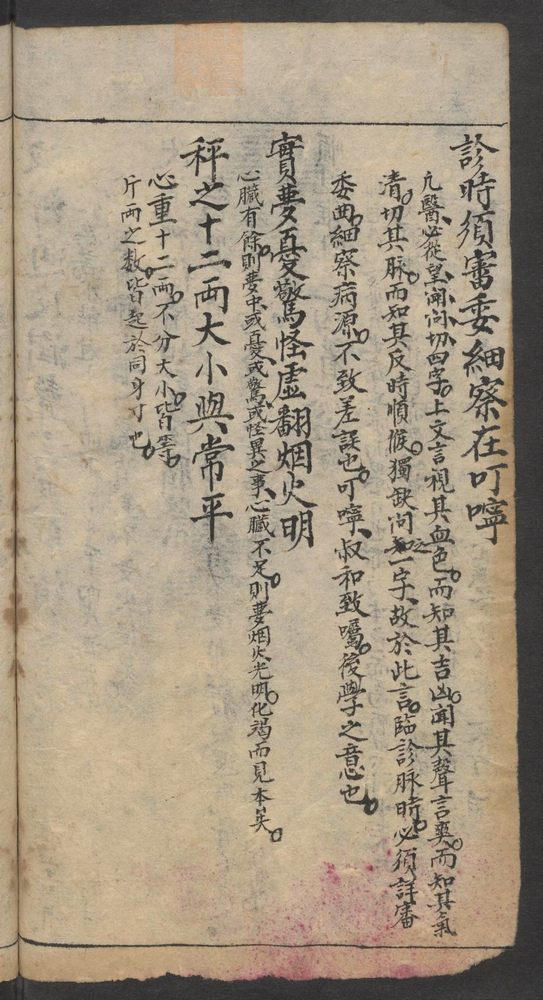 診時須審委細察在叮嚀
凢醫必從望聞问切四字。上文言視其血色。而知其吉凶。闻其聲言奭。而知其氣
清。切其脉。而知其反時順候。獨缺问之一字、故於此言。臨診脉時。必須詳審
委曲細察病源。不致差誤也。叮嚀、叔和致囑。後學之意也。
實夢憂驚怪虚翻烟火明
心臓有餘。則夢中或憂、或驚、或怪異之事、心臓不足。則夢烟火光明。化褐而見本矣。
秤之十二両大小與常平
心重十二両。不分大小。皆䓁。
斤両之数。皆起於同身寸也。